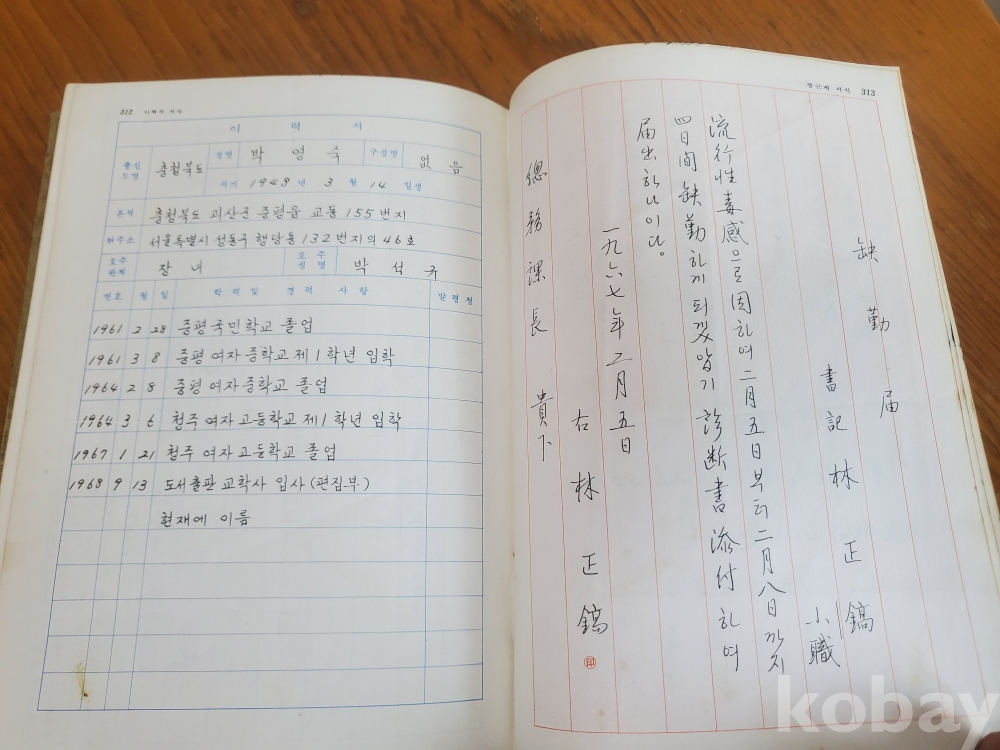 312 이력서 서식
이 력 서
출신도명 충청북도 성명 박 영 숙 구성명 없 음
서기 1949 년 3 월 14 일생
본적 충청북도 괴산군 증평읍 교동 155번지
현주소 서울특별시 성동구 행당동 132번지의 46호
호주관계 장 녀 호주성명 박 석 규
년호 월 일 학 력 및 경 력 사 항 발령청
1961 2 28 증평국민학교 졸업
1961 3 8 증평 여자 중학교 제1학년 입학
1964 2 8 증평 여자 중학교 졸업
1964 3 6 청주 여자 고등학교 제1학년 입학
1967 1 21 청주 여자 고등학교 졸업
1968 9 13 도서출판 교학사 입사 (편집부)
현재에 이름
결근계 서식 313
缺 勤 届
書記 林 正 鎬
小職
流行性毒感으로 因하여 二月五日부터 二月八日까지
四日間 缺勤하게 되겠압기 診断書 添付하여
届出하나이다。
一九六七年 二月 五日
右 林 正 鎬 ㊞
總務課長 貴下
kobay